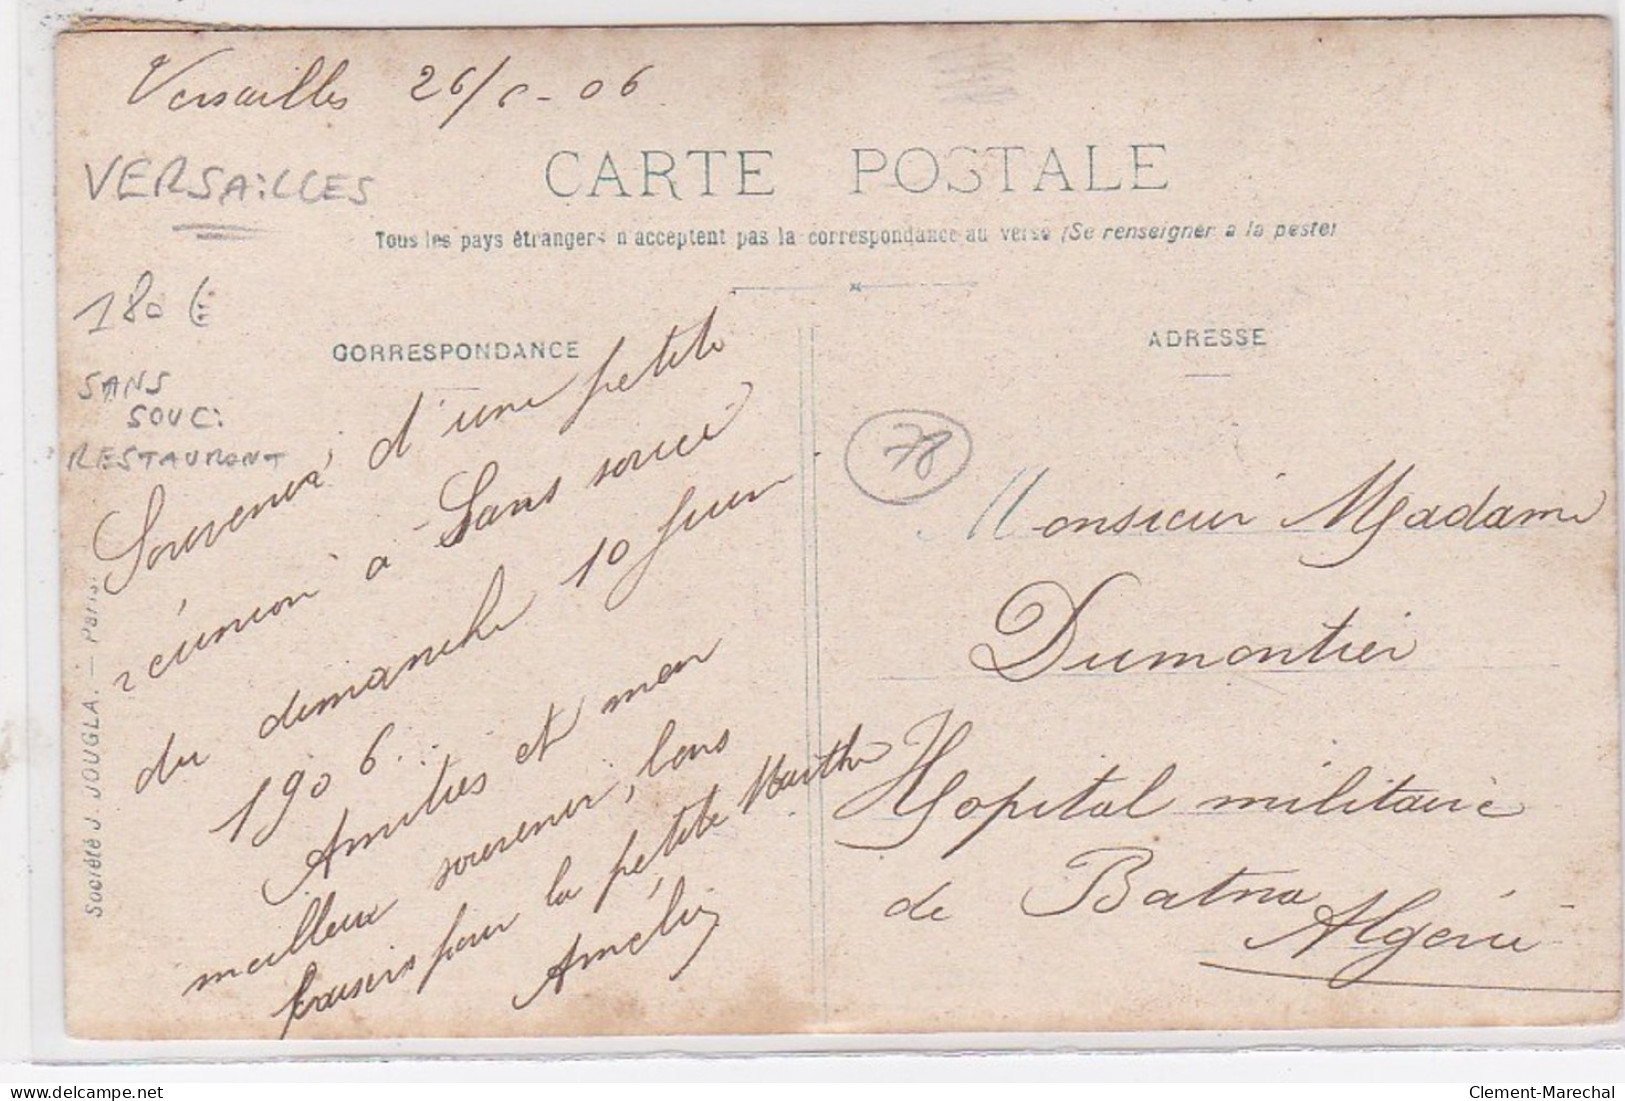 Versailles 26/6-06
VERSAiLLES
CARTE POSTALE
Tous les pays étrangers n'acceptent pas la correspondance au verso (Se renseigner à la poste)
180 €
SANS
SOUCi
RESTAURANT
CORRESPONDANCE
Souvenir d'une petite
réunion à Sans soucé
du dimanche 10 Juin
1906.
Amitiés et mon
meilleur souvenir, bons
baisers pour la petite Marthe
Amélie
Société J. JOUGLA. — Paris.
ADRESSE
78
Monsieur Madame
Dumontier
Hopital militaire
de Batna
Algérie
Clement-Marechal